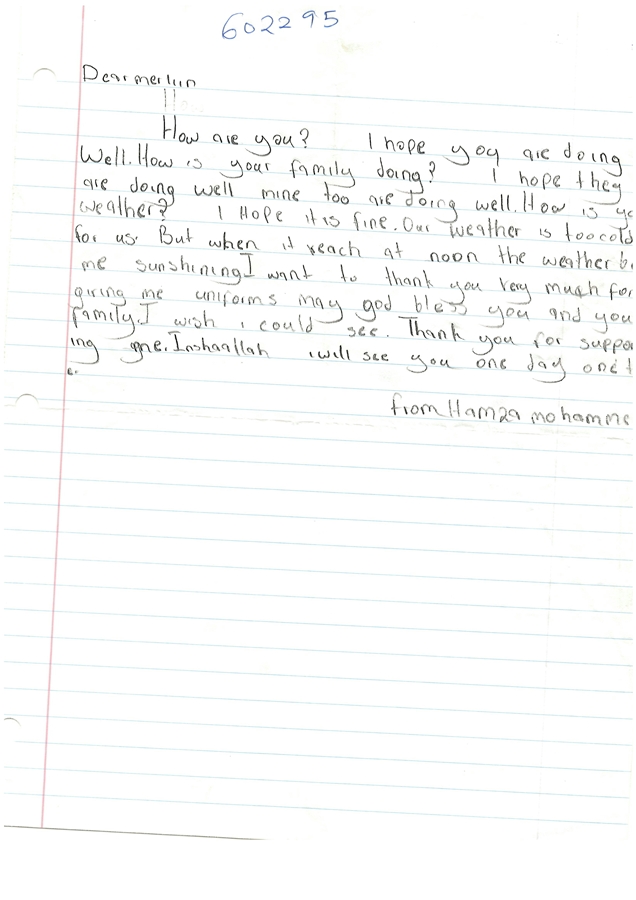 602295
Dear merlun
How are you? I hope yoy are doing
Well. How is your family doing? I hope they
are doing well mine too are doing well. How is yo
weather? I Hope it is fine. Our weather is too cold
for us. But when it reach at noon the weather be
me sunshining I want to thank you very much for
giving me uniforms may god bless you and you
family. I wish i could see. Thank you for suppor
ing me. Inshaallah i will see you one day one t
from Hamza mohamme